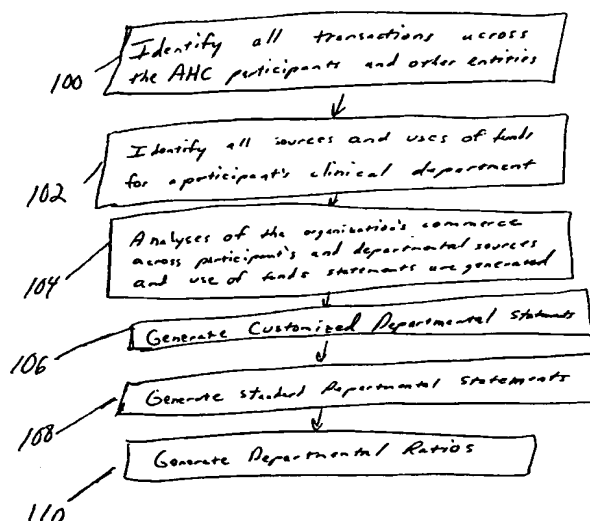 Identify all transactions across
the AHC participants and other entities
100
Identify all sources and uses of funds
for a participant's clinical department
102
Analyses of the organization's commerce
across participant's and departmental sources
and use of funds statements are generated
104
Generate Customized Departmental Statements
106
Generate Standard Departmental Statements
108
Generate Departmental Ratios
110